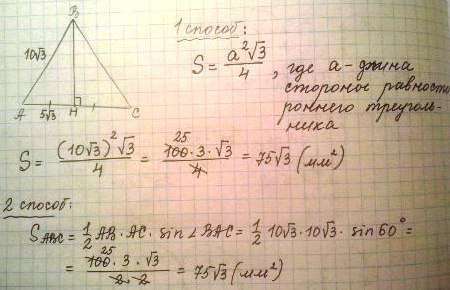 B
10√3
A 5√3 H C
1 способ:
S = a²√3/4, где a - длина
стороное равносто
роннего треуголь-
ника
S = (10√3)²√3/4 = 25 100·3·√3/4 = 75√3 (мм²)
2 способ:
S ABC = 1/2 AB·AC·sin∠BAC = 1/2 10√3·10√3·sin60° =
= 25 100·3·√3/2·2 = 75√3 (мм²)